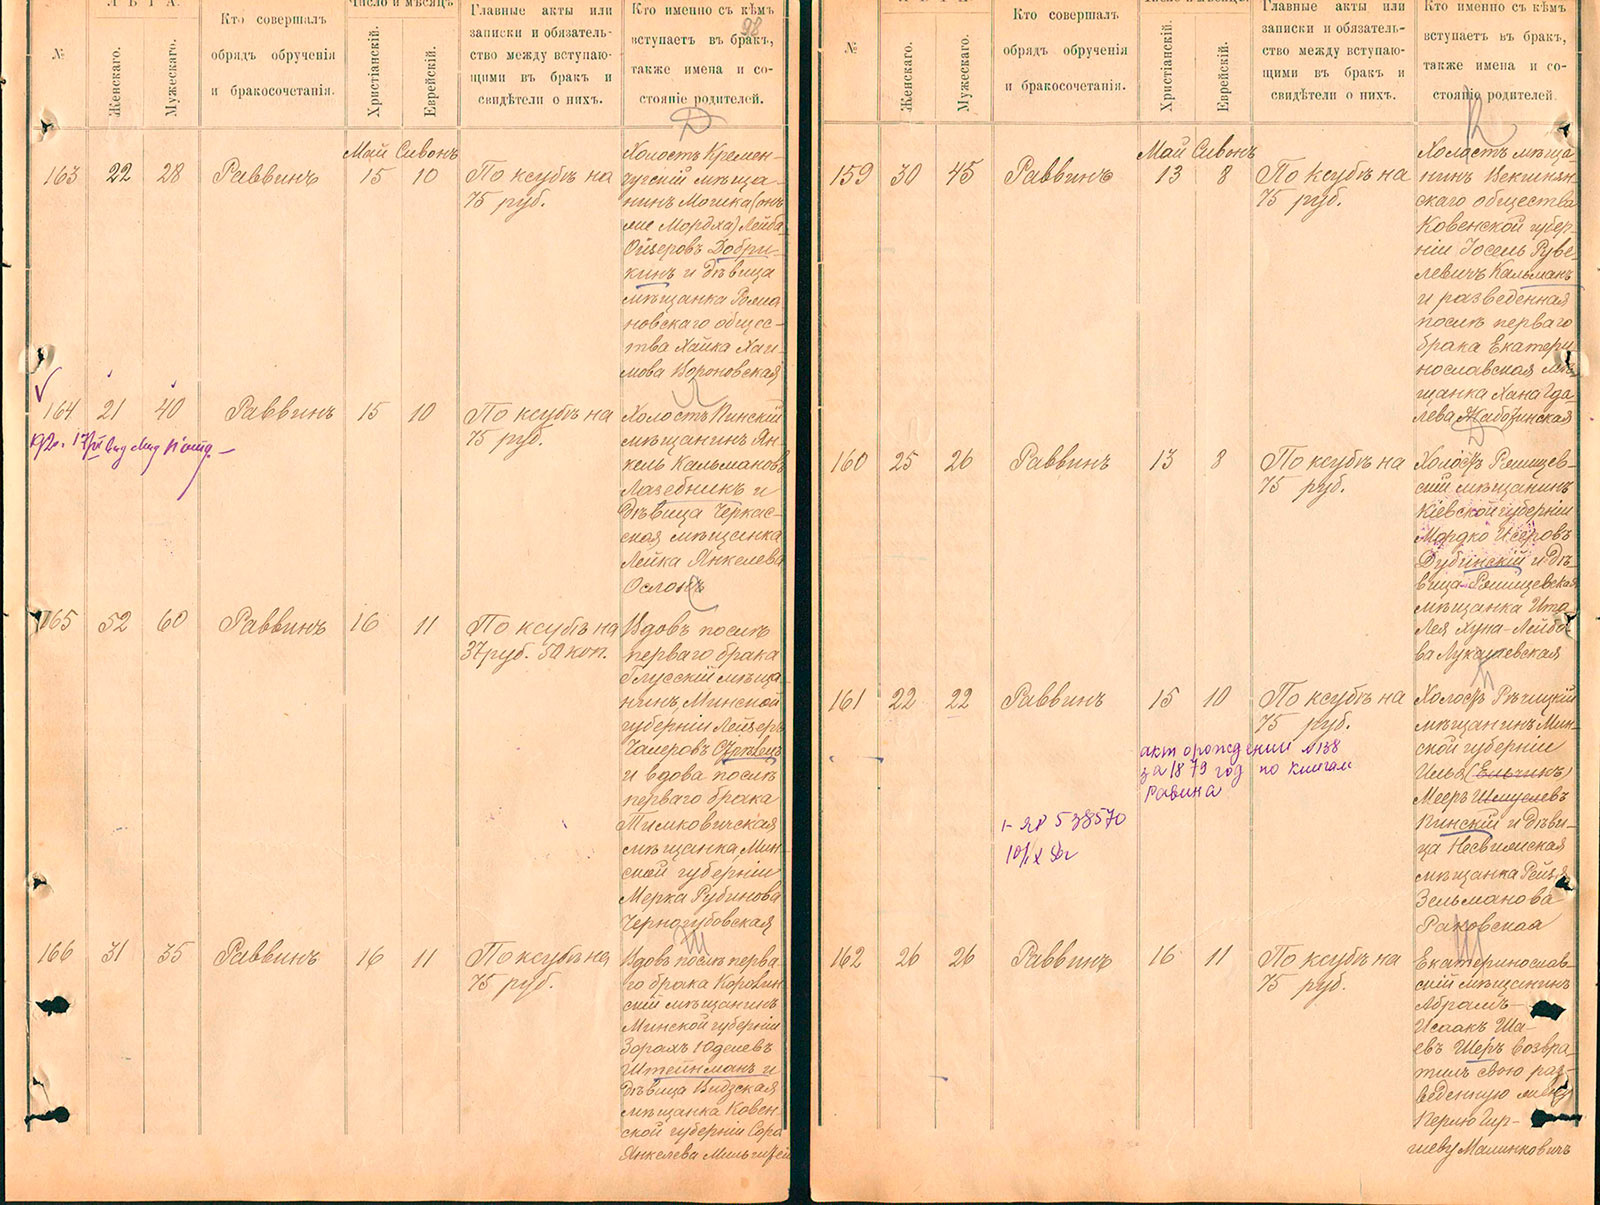 №
Женскаго.
Мужескаго.
Кто совершалъ
обрядъ обрученія
и бракосочетанія.
Число и мѣсяцъ
Христіанскій.
Еврейскій.
Главные акты или
записки и обязатель-
ство между вступаю-
щими въ бракъ и
свидѣтели о нихъ.
Кто именно съ кѣмъ
вступаетъ въ бракъ,
также имена и со-
стояніе родителей.
98
Д
Май Сивонъ
163 22 28 Раввинъ 15 10
По ксубѣ на
75 руб.
Холостъ Кремен-
чугскій мѣща-
нинъ Мошка (онъ
же Мордха) Лейба
Ойзеровъ Добри-
кинъ и дѣвица
мѣщанка Рома
новскаго общес-
тва Хайка Хаи-
мова Вороновская
164 21 40 Раввинъ 15 10
По ксубѣ на
75 руб.
Л
Холостъ Пинскій
мѣщанинъ Ян-
кель Кальмановъ
Лазебникъ и
дѣвица Черкас-
ская мѣщанка
Лейка Янкелева
Ослонъ
165 52 60 Раввинъ 16 11
По ксубѣ на
37 руб. 50 коп.
С
Вдовъ послѣ
перваго брака
Глусскій мѣща
нинъ Минской
губерніи Лейзеръ
и вдова послѣ
перваго брака
Тимковичская
мѣщанка Мин-
ской губерніи
Мерка Рубинова
Черногубовская
166 31 35 Раввинъ 16 11
По ксубѣ на
75 руб.
Ш
Вдовъ послѣ перва
го брака
скій мѣщанинъ
Минской губерніи
Зорахъ Юделевъ
Штейнманъ и
дѣвица Видзская
мѣщанка Ковен
ской губерніи Сора
Янкелева
№
Женскаго.
Мужескаго.
Кто совершалъ
обрядъ обрученія
и бракосочетанія.
Число и мѣсяцъ.
Христіанскій.
Еврейскій.
Главные акты или
записки и обязатель-
ство между вступаю-
щими въ бракъ и
свидѣтели о нихъ.
Кто именно съ кѣмъ
вступаетъ въ бракъ,
также имена и со-
стояніе родителей.
К
Май Сивонъ
159 30 45 Раввинъ 13 8
По ксубѣ на
75 руб.
Холостъ мѣща
нинъ Векшнян
скаго общества
Ковенской губер
ніи Іосель Руве
левичъ Кальманъ
и разведенная
послѣ перваго
брака Екатери
нославская мѣ
щанка Хана Гда
лева Жаботинская
160 25 26 Раввинъ 13 8
По ксубѣ на
75 руб.
Д
Холостъ Ржищев-
скій мѣщанинъ
Кіевской губерніи
Мордко Исеровъ
Дубинскій и дѣ-
вица Ржищевская
мѣщанка Ита-
Лея Хуна-Лейбо-
ва Лукашевская
161 22 22 Раввинъ 15 10
По ксубѣ на
75 руб.
акт о рождении №138
за 1879 год по книгам
Равина
I-ЯР 538570
П
Холостъ Рѣчицкій
мѣщанинъ Мин-
ской губерніи
Илья (Ельчинъ)
Мееръ Шмуелевъ
Пинскій и дѣви-
ца Несвижская
мѣщанка Рейза
Зельманова
Раковская
162 26 26 Раввинъ 16 11
По ксубѣ на
75 руб.
Ш
Екатеринослав-
скій мѣщанинъ
Абрамъ-
Исаакъ Ша-
евъ Шеръ возвра
тилъ свою раз-
веденную жену
Перлю Гир-
шеву Малинковичъ